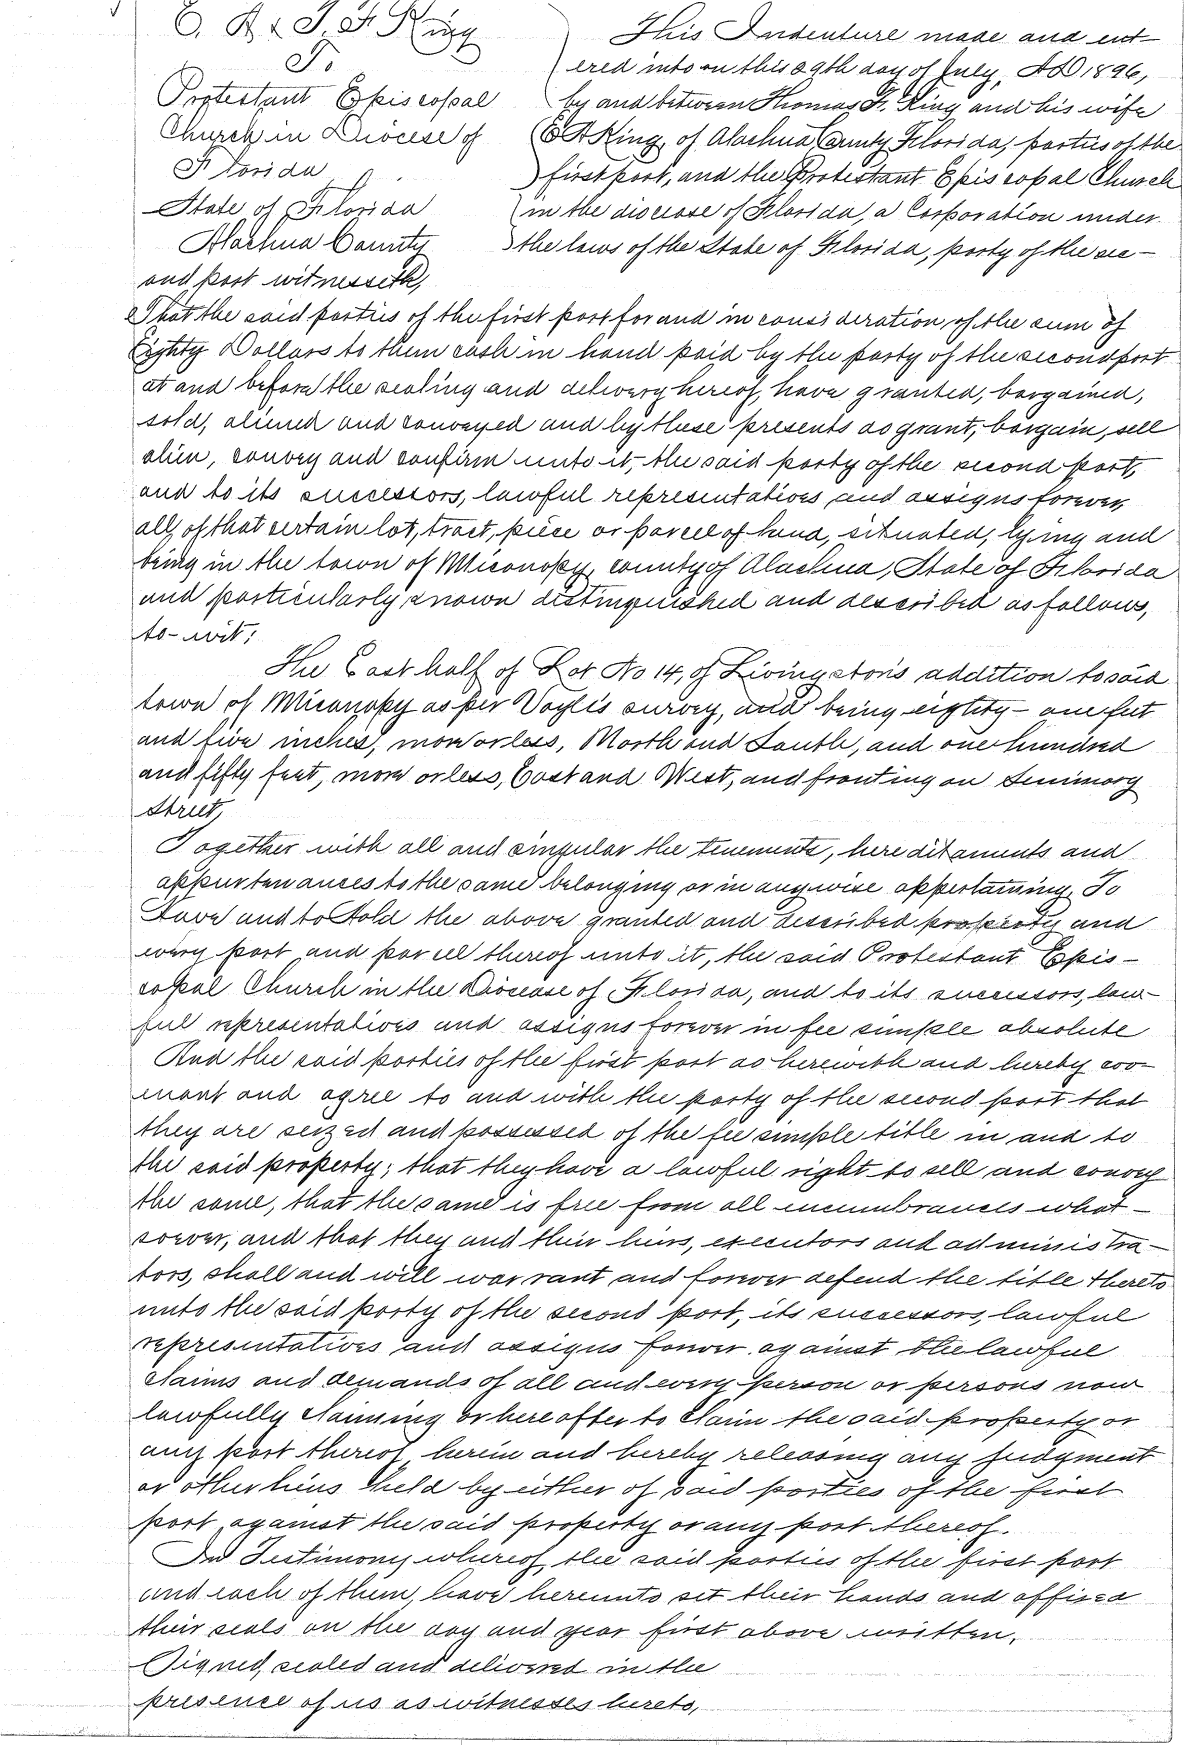 E. A. & T. F. King
To
Protestant Episcopal
Church in Diocese of
Florida
State of Florida
Alachua County
This Indenture made and ent-
ered into on this 29th day of July, AD 1896,
by and between Thomas F. King and his wife
E A King, of Alachua County Florida, parties of the
first part, and the Protestant Episcopal Church
in the diocease of Florida, a Corporation under
the laws of the State of Florida, party of the sec-
ond part witnesseth,
That the said parties of the first part for and in consideration of the sum of
Eighty Dollars to them cash in hand paid by the party of the second part
at and before the sealing and delivery hereof, have granted, bargained,
sold, aliened and conveyed and by these presents do grant, bargain, sell
alien, convey and confirm unto it, the said party of the second part,
and to its successors, lawful representatives and assigns forever,
all of that certain lot, tract, piece or parcel of land, situated, lying and
being in the town of Micanopy, county of Alachua, State of Florida
and particularly known distinguished and described as follows,
to-wit:
The East half of Lot No 14, of Livingston's addition to said
town of Micanopy as per Voyle's survey, and being eighty-one feet
and five inches, more or less, North and South, and one hundred
and fifty feet, more or less, East and West, and fronting on Seminary
Street,
Together with all and singular the tenements, hereditaments and
appurtenances to the same belonging or in anywise appertaining, To
Have and to Hold the above granted and described property and
every part and parcel thereof unto it, the said Protestant Epis-
copal Church in the Diocease of Florida, and to its successors, law-
ful representatives and assigns forever in fee simple absolute
And the said parties of the first part do herewith and hereby cov-
enant and agree to and with the party of the second part that
they are seized and possessed of the fee simple title in and to
the said property; that they have a lawful right to sell and convey
the same, that the same is free from all incumbrances what-
soever, and that they and their heirs, executors and administra-
tors, shall and will warrant and forever defend the title thereto
unto the said party of the second part, its successors, lawful
representatives and assigns forever against the lawful
claims and demands of all and every person or persons now
lawfully claiming or hereafter to claim the said property or
any part thereof, herein and hereby releasing any judgment
or other liens held by either of said parties of the first
part, against the said property or any part thereof.
In Testimony whereof, the said parties of the first part
and each of them, have hereunto set their hands and affixed
their seals on the day and year first above written.
Signed, sealed and delivered in the
presence of us as witnesses hereto,